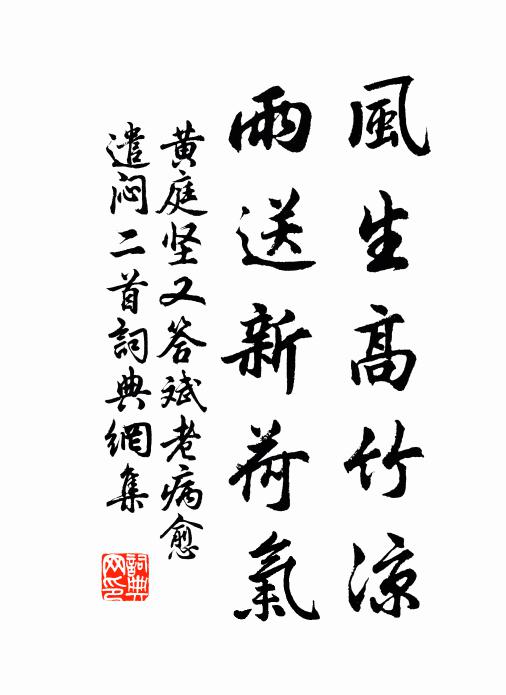 風生高竹涼
雨送新荷氣
黄庭坚又答斌老病愈
遣闷二首詞典網集
詞典網印